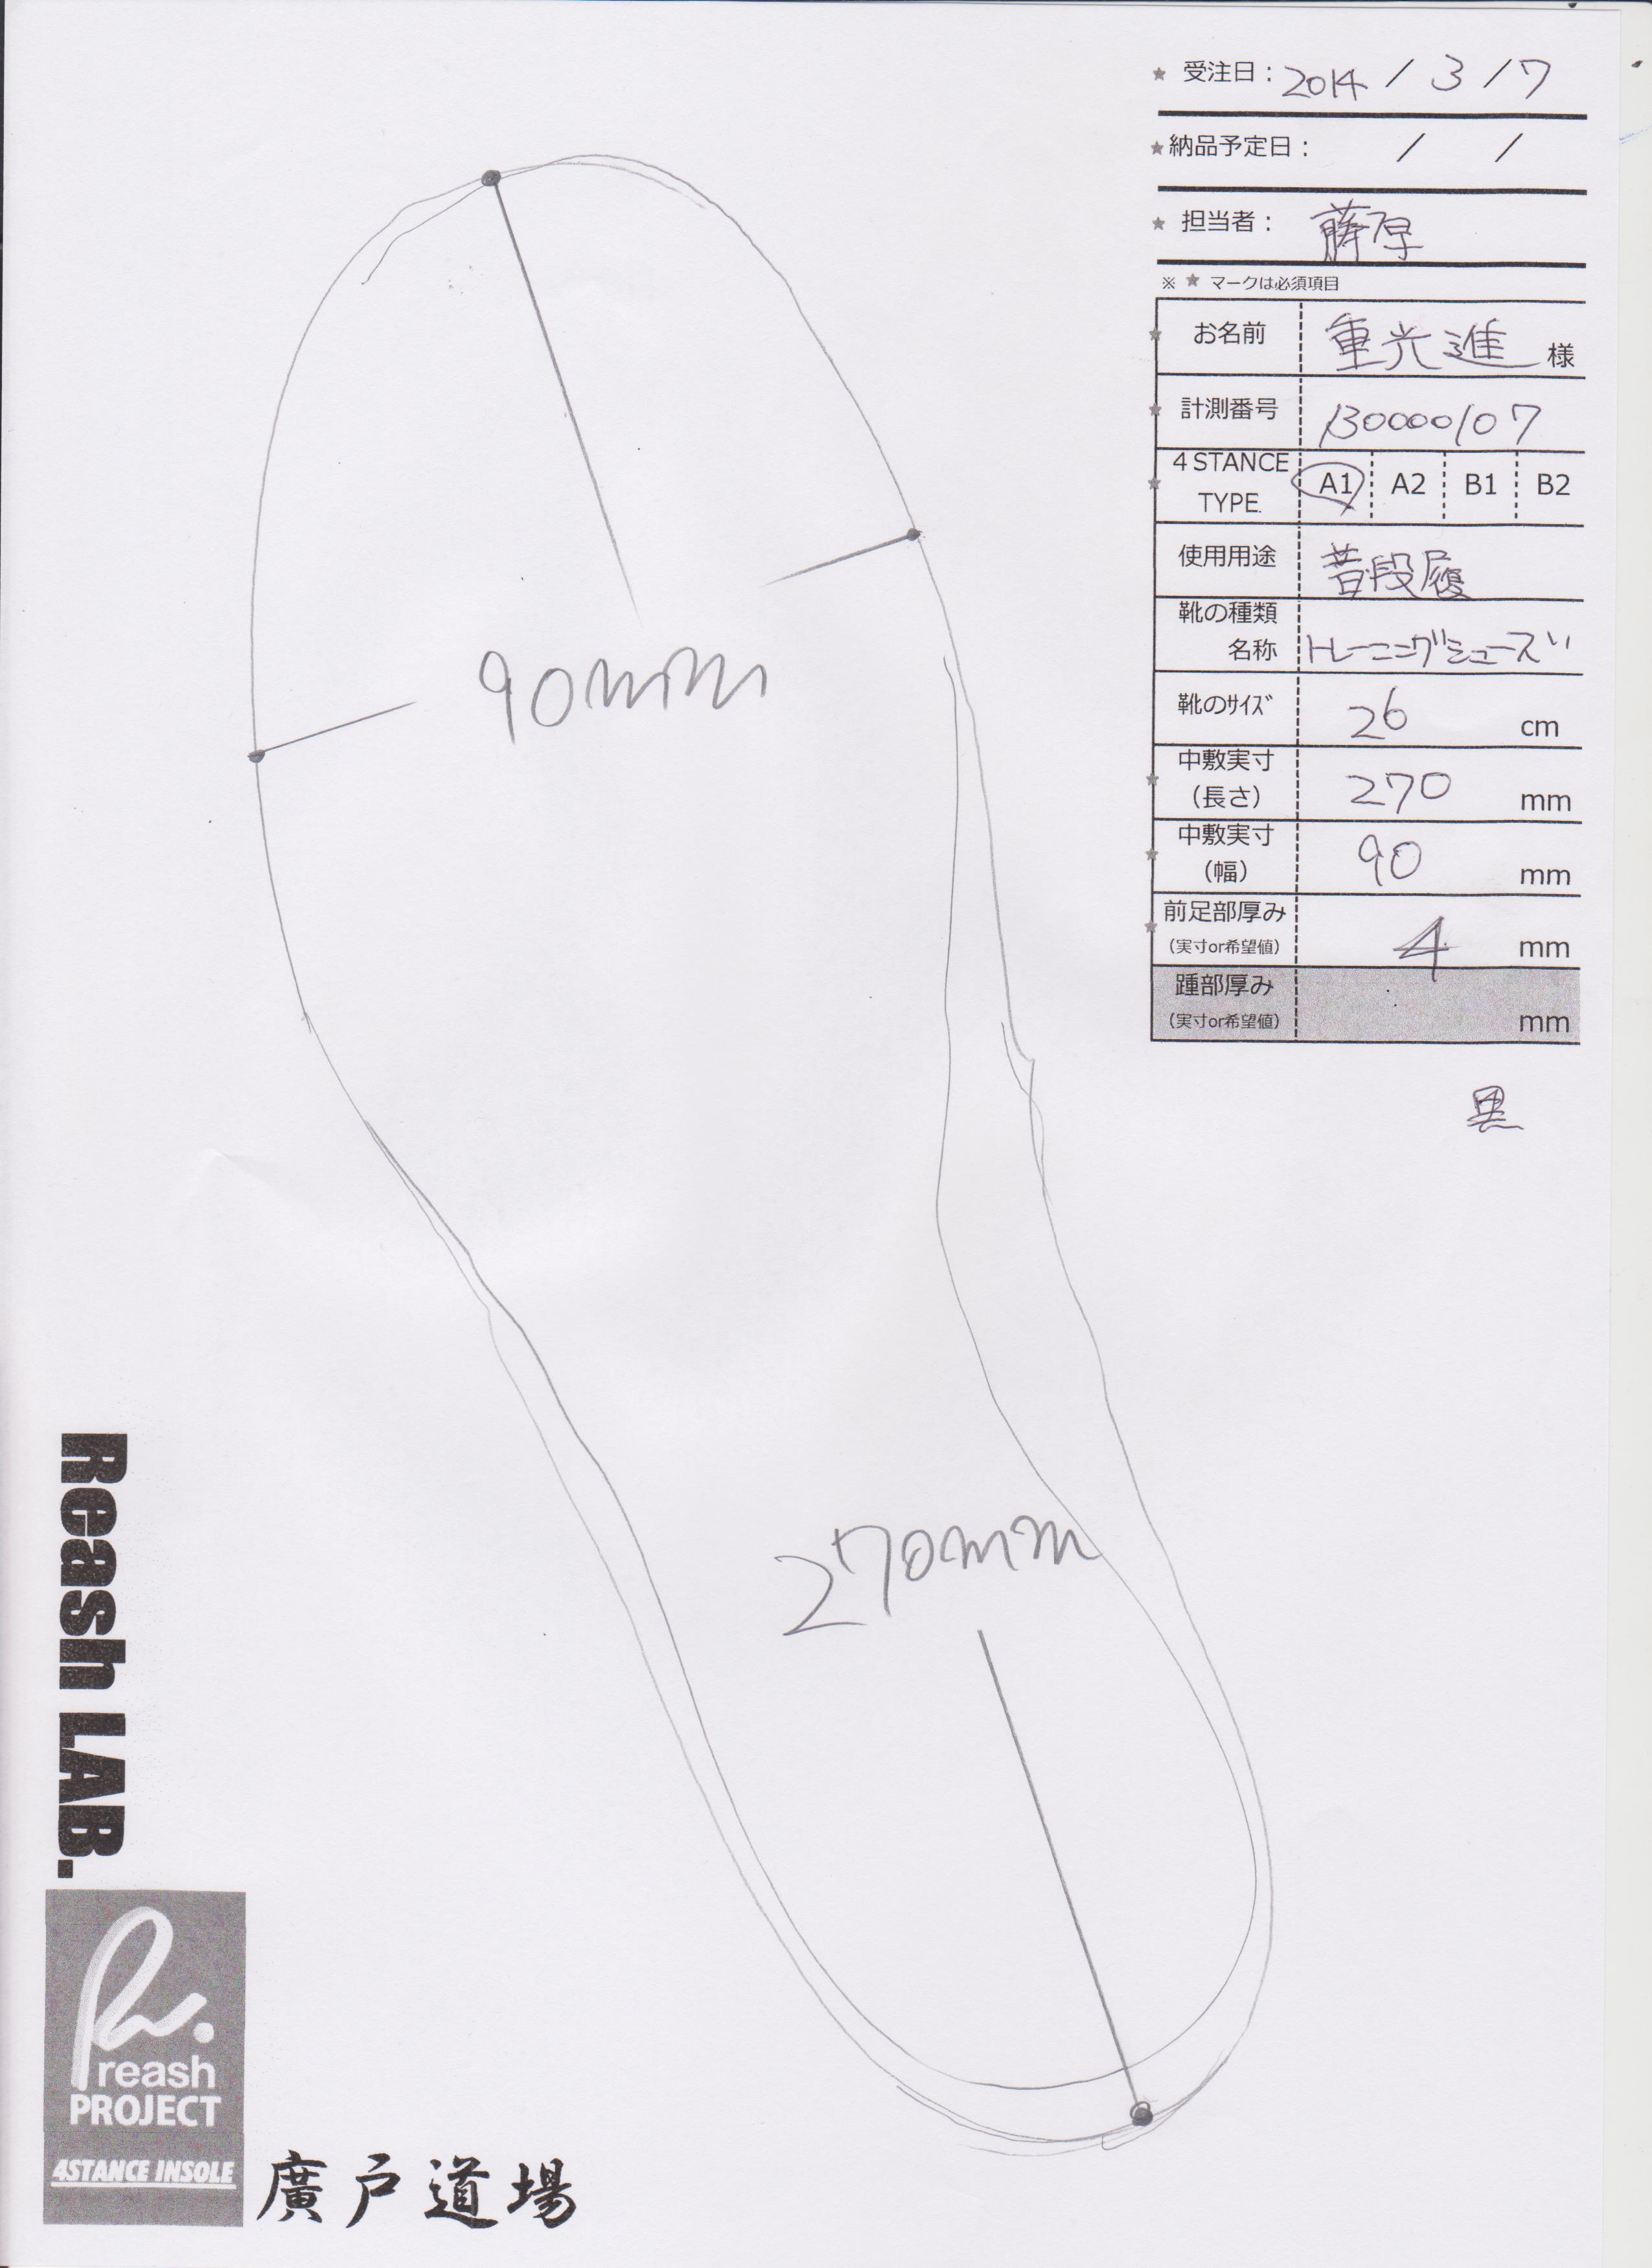 ★ 受注日：2014 / 3 / 7
★ 納品予定日： / /
★ 担当者： 藤原
※ ★ マークは必須項目
★ お名前 重光進 様
★ 計測番号 B0000107
★ 4STANCE TYPE. A1 A2 B1 B2
使用用途 普段履
靴の種類 名称 トレーニングシューズ
靴のｻｲｽﾞ 26 cm
★ 中敷実寸（長さ） 270 mm
★ 中敷実寸（幅） 90 mm
★ 前足部厚み（実寸or希望値） 4 mm
踵部厚み（実寸or希望値） mm
黒
90mm
270mm
Reash LAB.
R.
reash
PROJECT
4STANCE INSOLE
廣戸道場